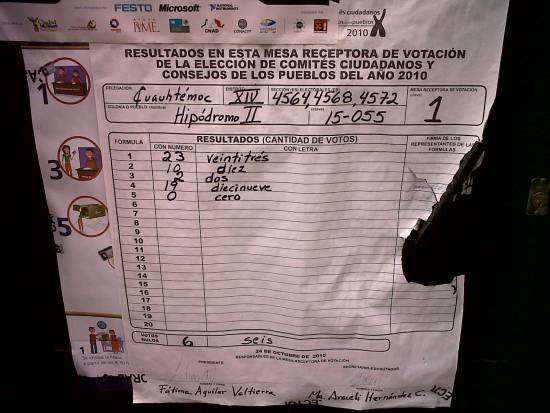 FESTO Microsoft
CNAD CONACYT
és ciudadanos
pueblos
2010
RESULTADOS EN ESTA MESA RECEPTORA DE VOTACIÓN
DE LA ELECCIÓN DE COMITÉS CIUDADANOS Y
CONSEJOS DE LOS PUEBLOS DEL AÑO 2010
DELEGACIÓN Cuauhtémoc DISTRITO XIV 4564, 4568, 4572 MESA RECEPTORA DE VOTACIÓN
COLONIA O PUEBLO Hipódromo II 15-055 1
RESULTADOS (CANTIDAD DE VOTOS) FIRMA DE LOS
FÓRMULA CON NÚMERO CON LETRA REPRESENTANTES DE LAS
FÓRMULAS
1 23 veintitrés
2 10 diez
3 2 dos
4 19 diecinueve
5 0 cero
6
7
8
9
10
11
12
13
14
15
16
17
18
19
20
VOTOS NULOS 6 seis
24 DE OCTUBRE DE 2010
RESPONSABLES DE LA MESA RECEPTORA DE VOTACIÓN
PRESIDENTE
Fátima Aguilar Valtierra Ma. Araceli Hernández C.
1
3
5
1